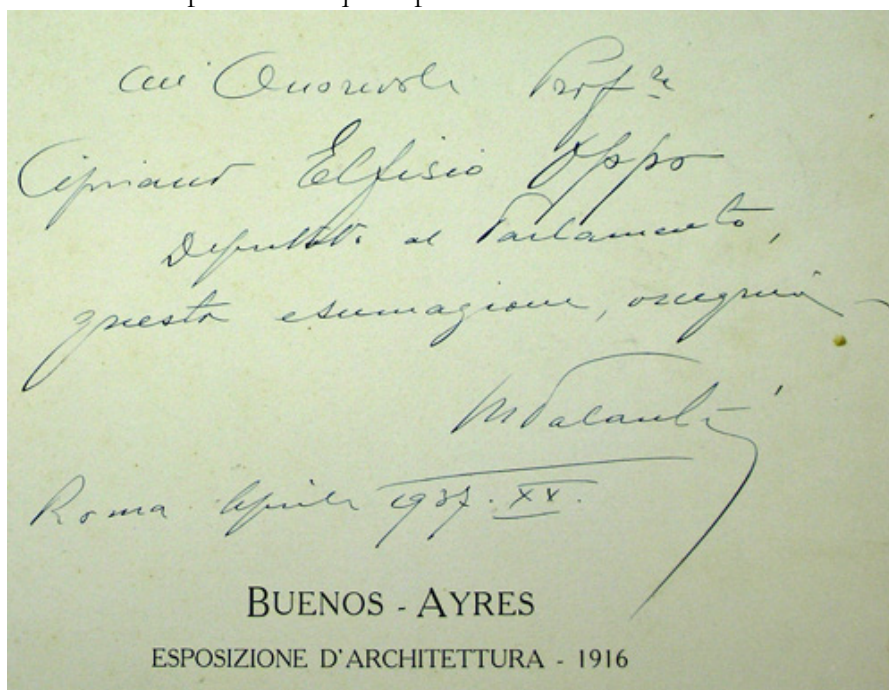 All' Onorevole Prof.re
Cipriano Elfisio Oppo
Deputato al Parlamento,
questa esumazione,
MPalanti
Roma Aprile 1937. XV.
BUENOS - AYRES
ESPOSIZIONE D'ARCHITETTURA - 1916